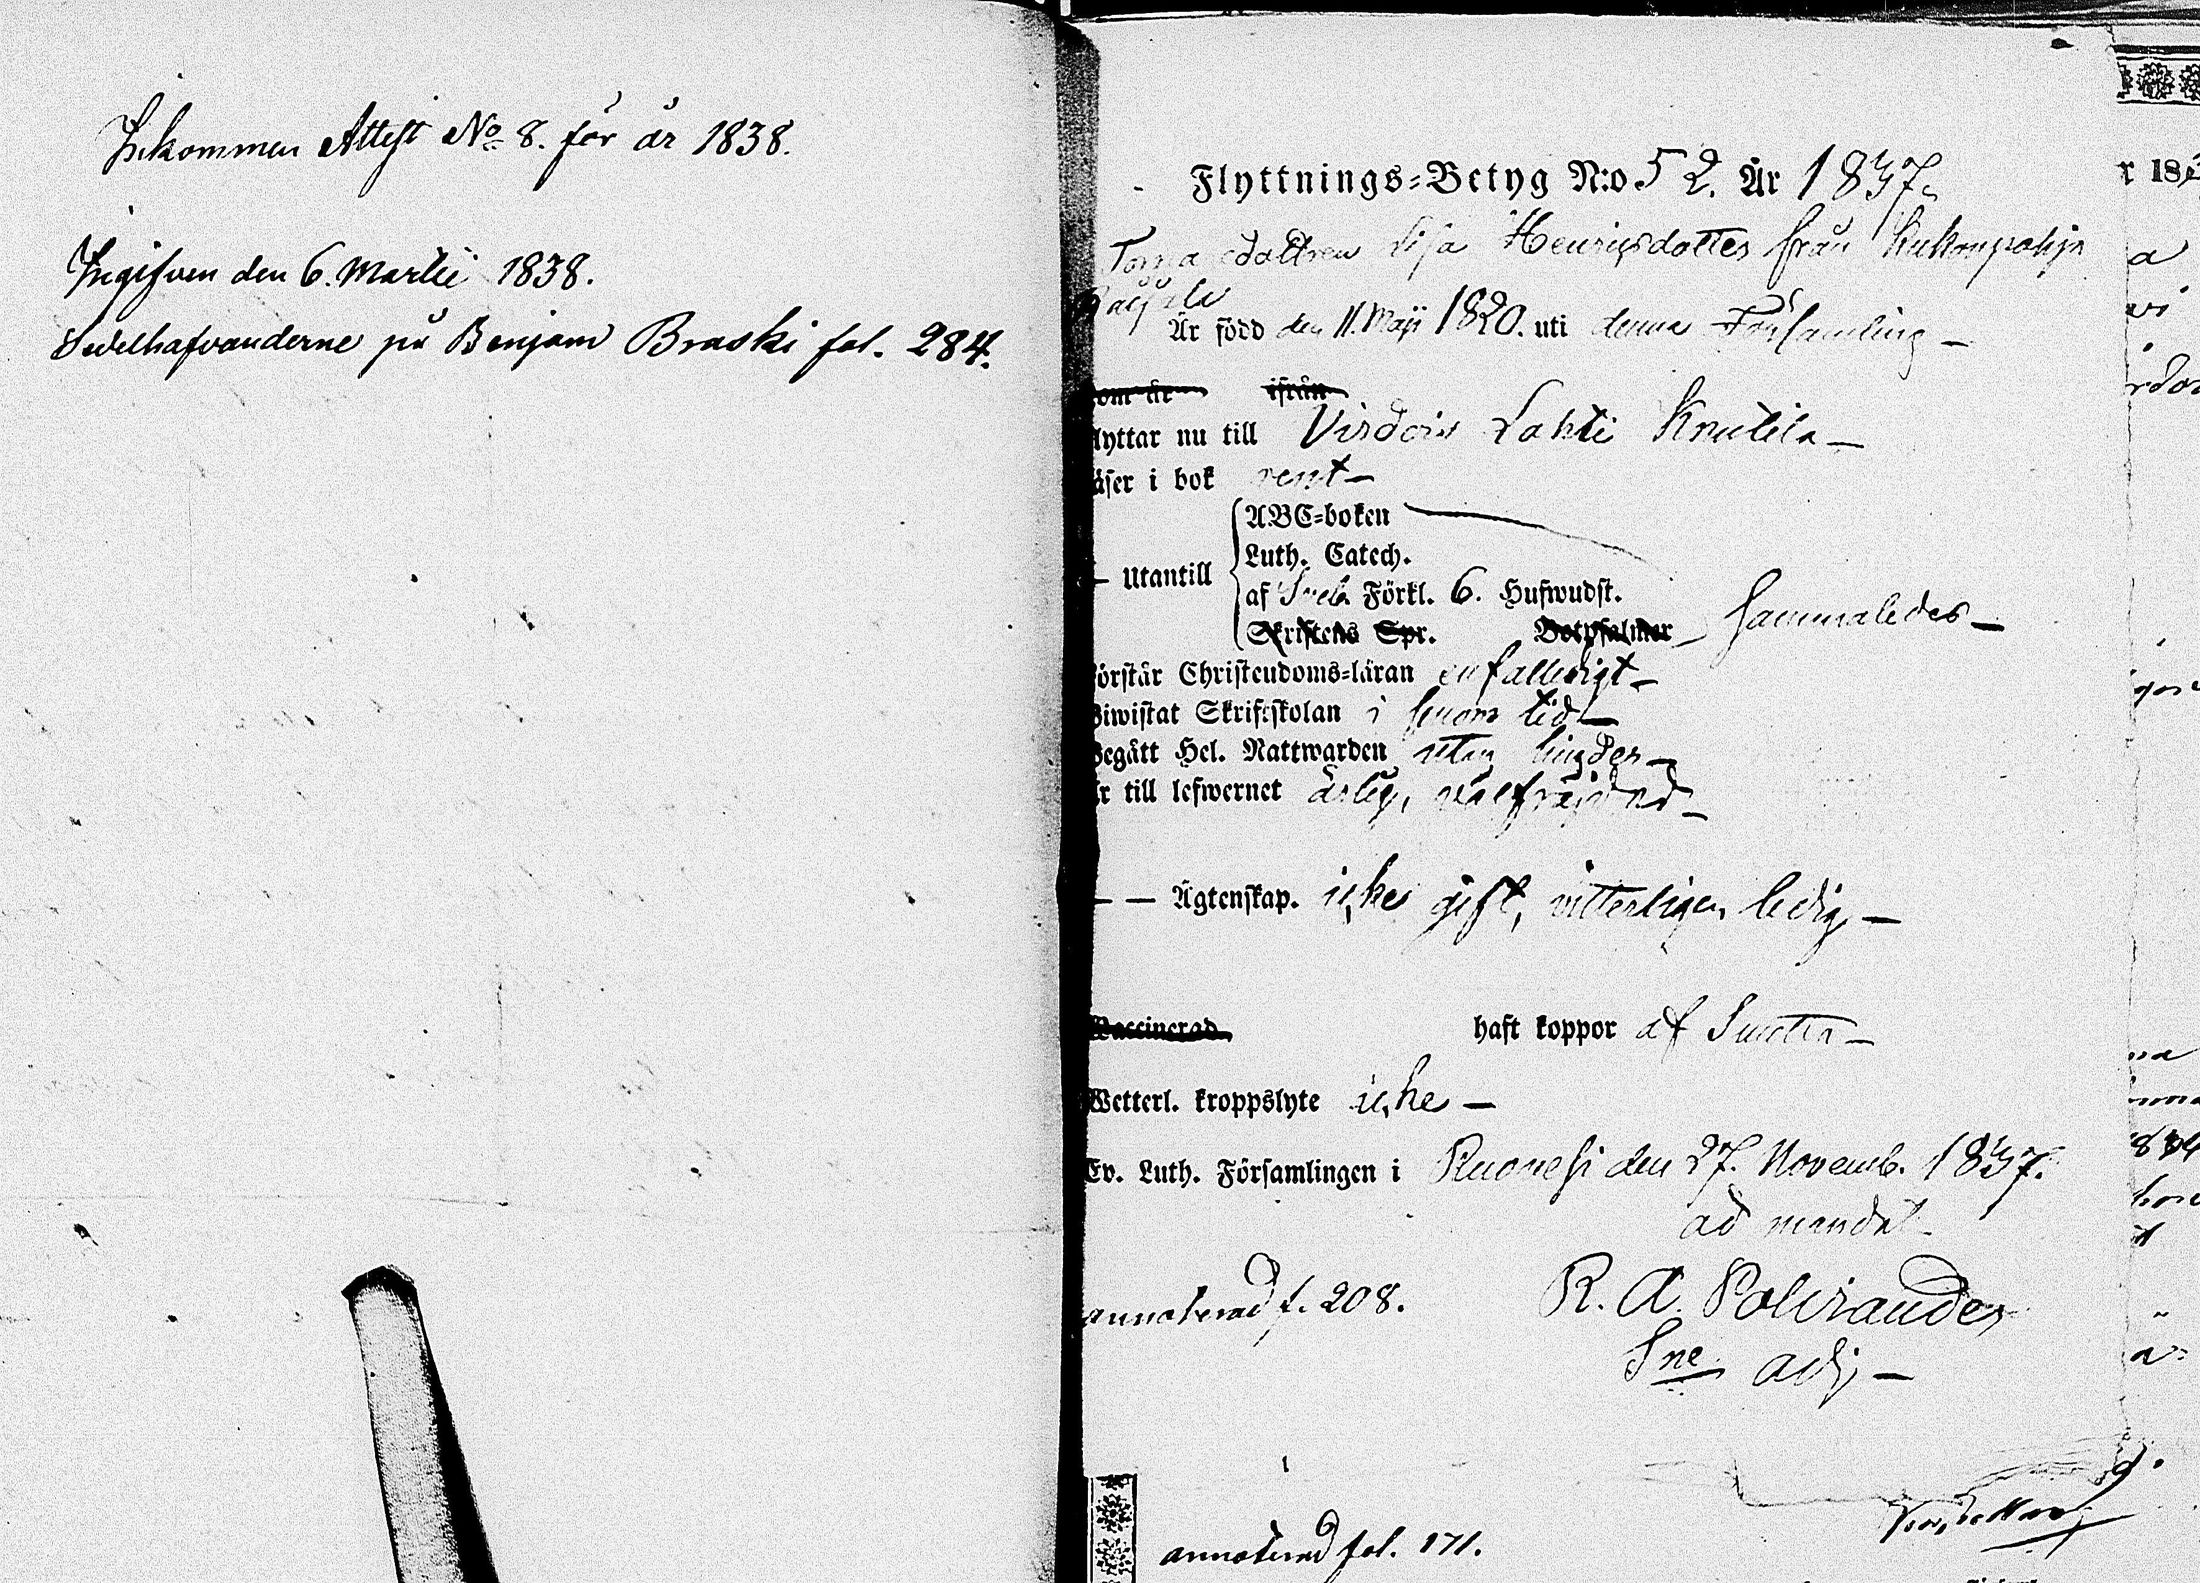 Inkommen Attest No 8. för år 1838.
Ingifven den 6. Martii 1838.
Sedelhafvanderne på Benjam Braski fol. 284.
Flyttnings-Betyg N:o 52. År 1837.
Lisa Henrigsdotter från
Är född den 11. Maji 1820. uti denna Församling —
om är ifrån
lyttar nu till Virdois Lahti Knutila —
äser i bok rent —
ABC-boken
Luth. Catech.
— Utantill
af Sveb. Förkl. 6. Hufwudst.
Skriftens Spr. Botpsalmer sammaledes —
örstår Christendoms-läran enfalldigt —
iwistat Skriftskolan i senare tid —
egått Hel. Nattwarden utan hinder —
r till lefwernet ärlig, välfräjdad —
— — Ägtenskap. icke gift, vitterligen ledig —
Vaccinerad haft koppor af
Wetterl. kroppslyte icke —
Ev. Luth. Församlingen i Ruovesi den 27. Novemb. 1837.
ad mandat.
annoterad f. 208. R. A. Polviander
Sne adj —
annoterad fol. 171.